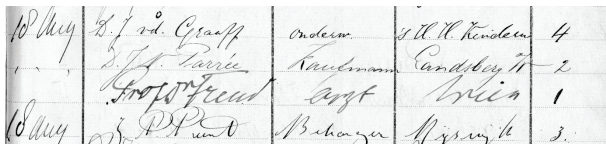 18 Aug D. J. v.d. Graaff onderw. 's H. H. Kinderen 4
" " D. J. V. Parree Kaufmann Landsberg a/W 2
Prof Dr Freud Arzt Wien 1
18 Aug Behanger Rijswijk 3.